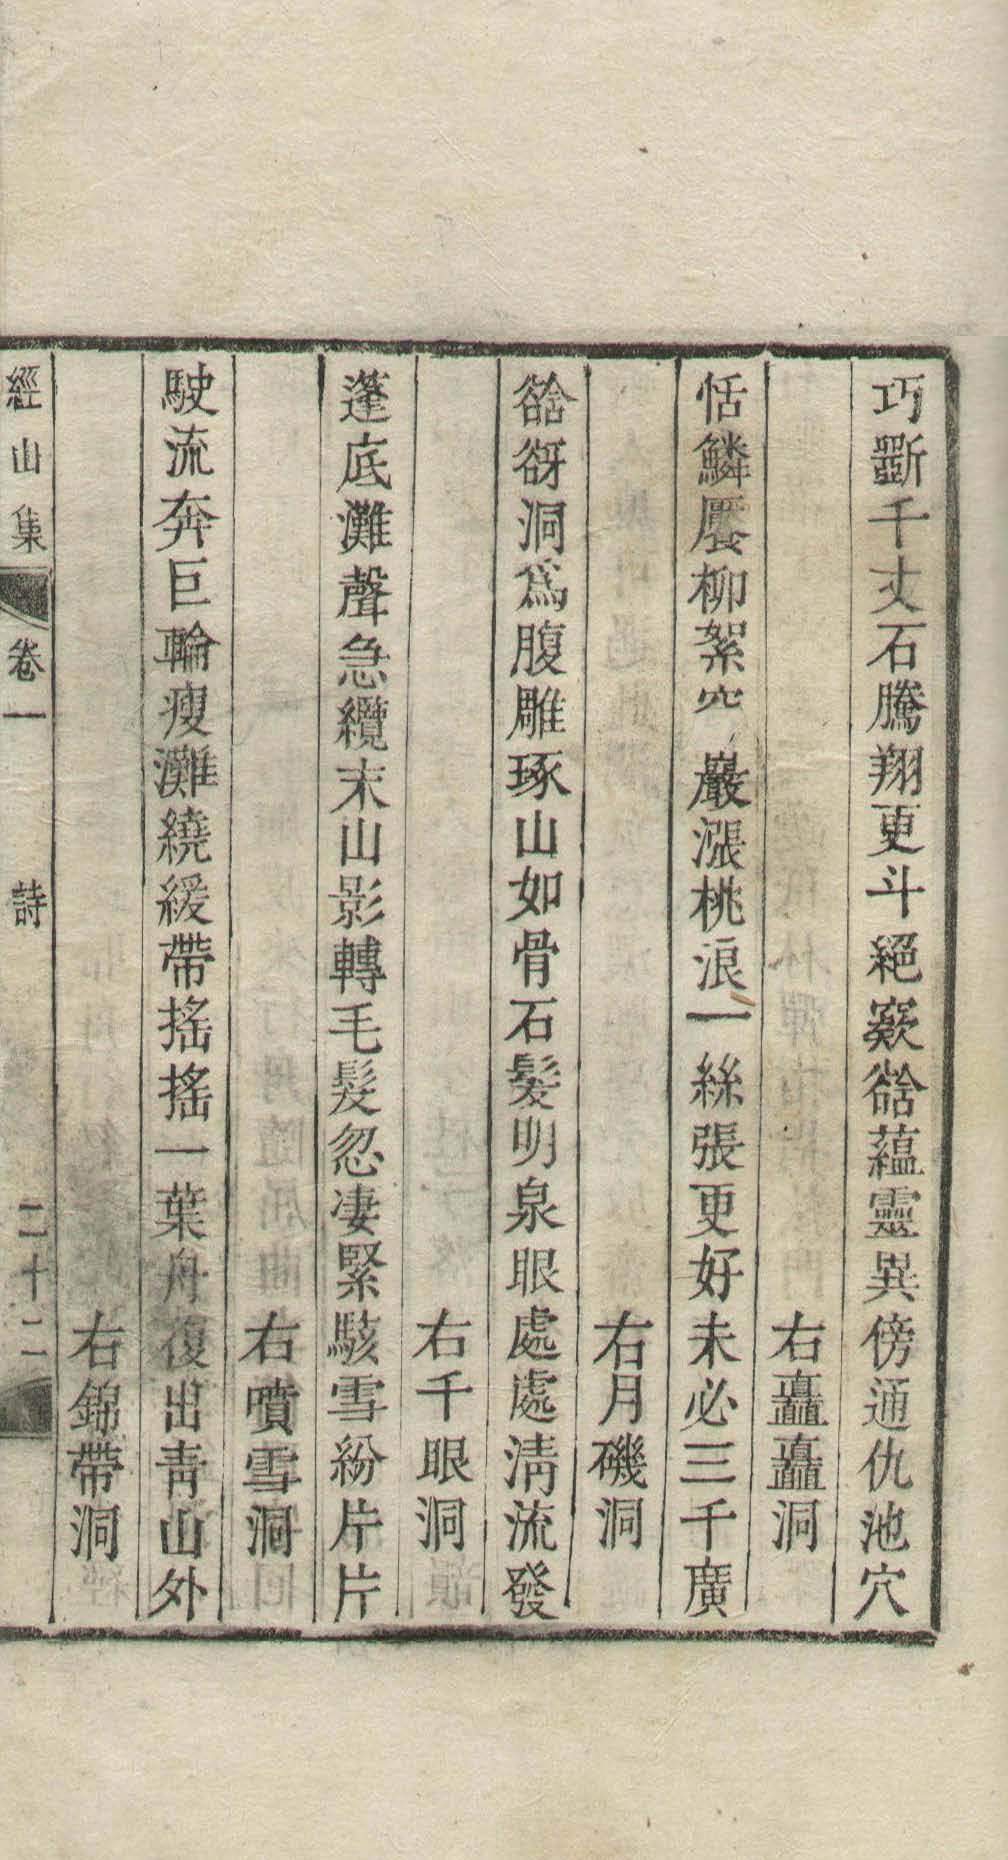 巧斵千丈石騰翔更斗絕窾谽蘊靈異傍通仇池穴
右矗矗洞
恬鱗屢柳絮空巖漲桃浪一絲張更好未必三千廣
右月磯洞
谽谺洞爲腹雕琢山如骨石髮明泉眼處處清流發
右千眼洞
蓬底灘聲急纜末山影轉毛髮忽凄緊駭雪紛片片
右噴雪洞
駛流奔巨輪瘦灘繞緩帶搖搖一葉舟復出靑山外
右錦帶洞
經山集 卷一 詩 二十二